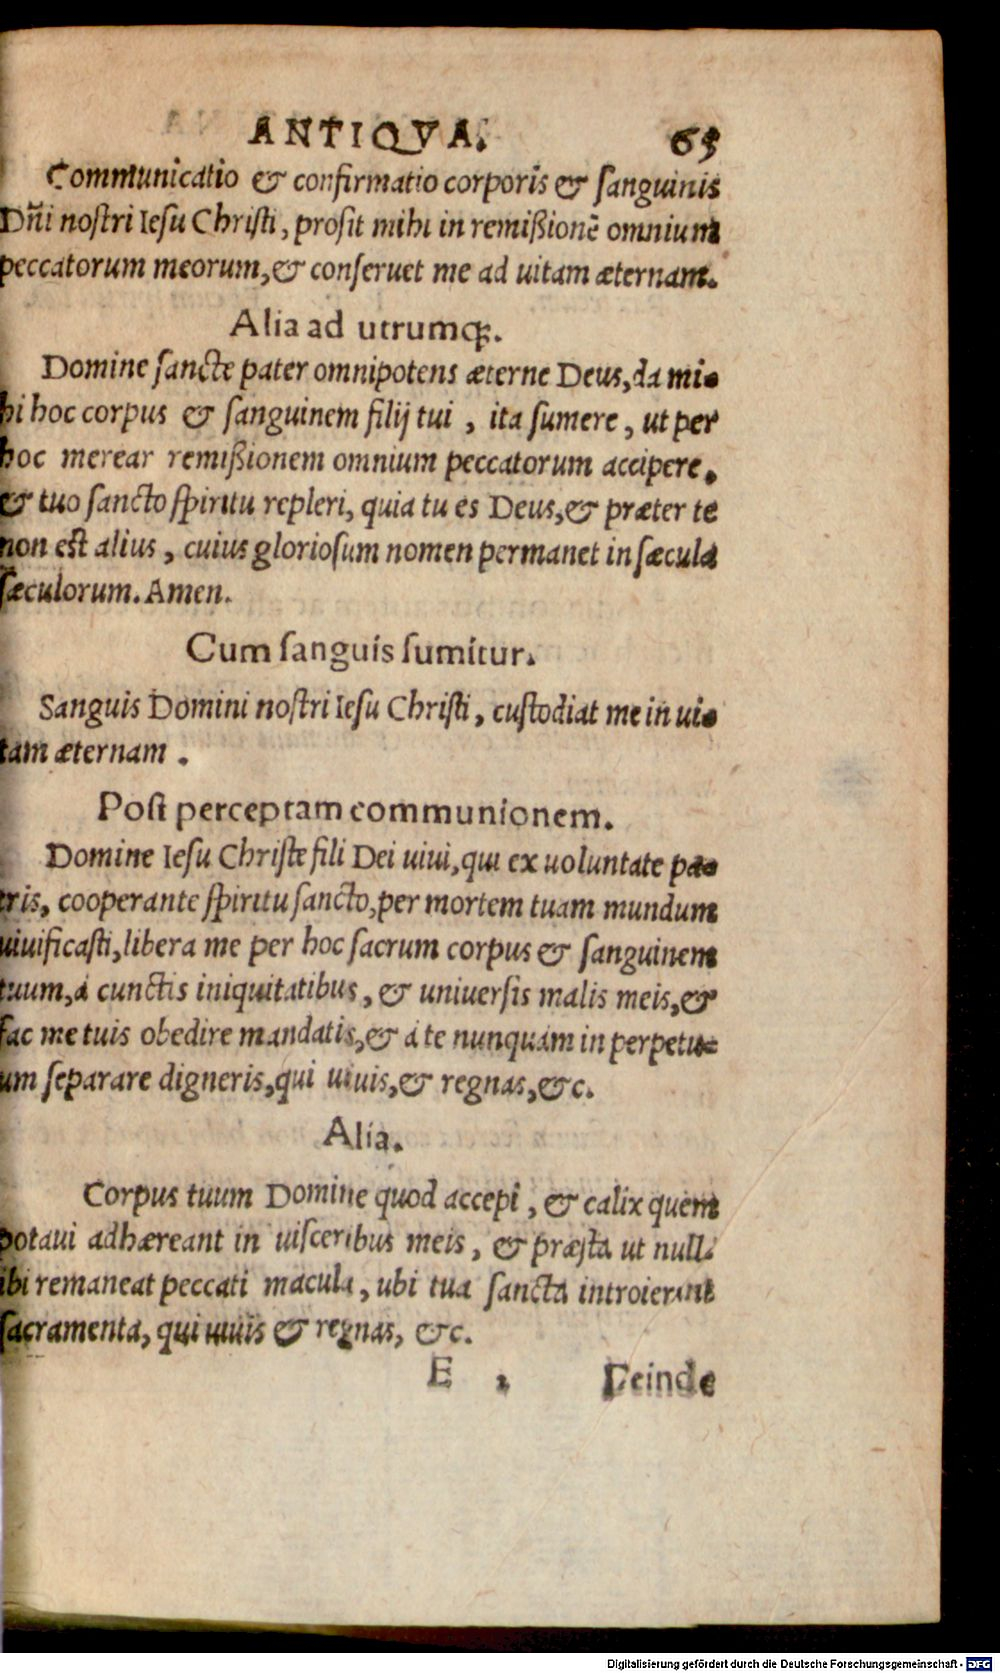 ANTIQVA. 65
Communicatio & confirmatio corporis & sanguinis
Dñi nostri Iesu Christi, prosit mihi in remißionẽ omnium
peccatorum meorum, & conseruet me ad uitam æternam.
Alia ad utrumq;.
Domine sancte pater omnipotens æterne Deus, da mi-
hi hoc corpus & sanguinem filij tui, ita sumere, ut per
hoc merear remißionem omnium peccatorum accipere,
& tuo sancto spiritu repleri, quia tu es Deus, & præter te
non est alius, cuius gloriosum nomen permanet in sæcula
sæculorum. Amen.
Cum sanguis sumitur.
Sanguis Domini nostri Iesu Christi, custodiat me in ui-
tam æternam.
Post perceptam communionem.
Domine Iesu Christe fili Dei uiui, qui ex uoluntate pa-
tris, cooperante spiritu sancto, per mortem tuam mundum
uiuificasti, libera me per hoc sacrum corpus & sanguinem
tuum, á cunctis iniquitatibus, & uniuersis malis meis, &
fac me tuis obedire mandatis, & á te nunquám in perpetu-
um separare digneris, qui uiuis, & regnas, &c.
Alia.
Corpus tuum Domine quod accepi, & calix quem
potaui adhæreant in uisceribus meis, & præsta ut nulla
ibi remaneat peccati macula, ubi tua sancta introierunt
sacramenta, qui uiuis & regnas, &c.
E Deinde
Digitalisierung gefördert durch die Deutsche Forschungsgemeinschaft - DFG